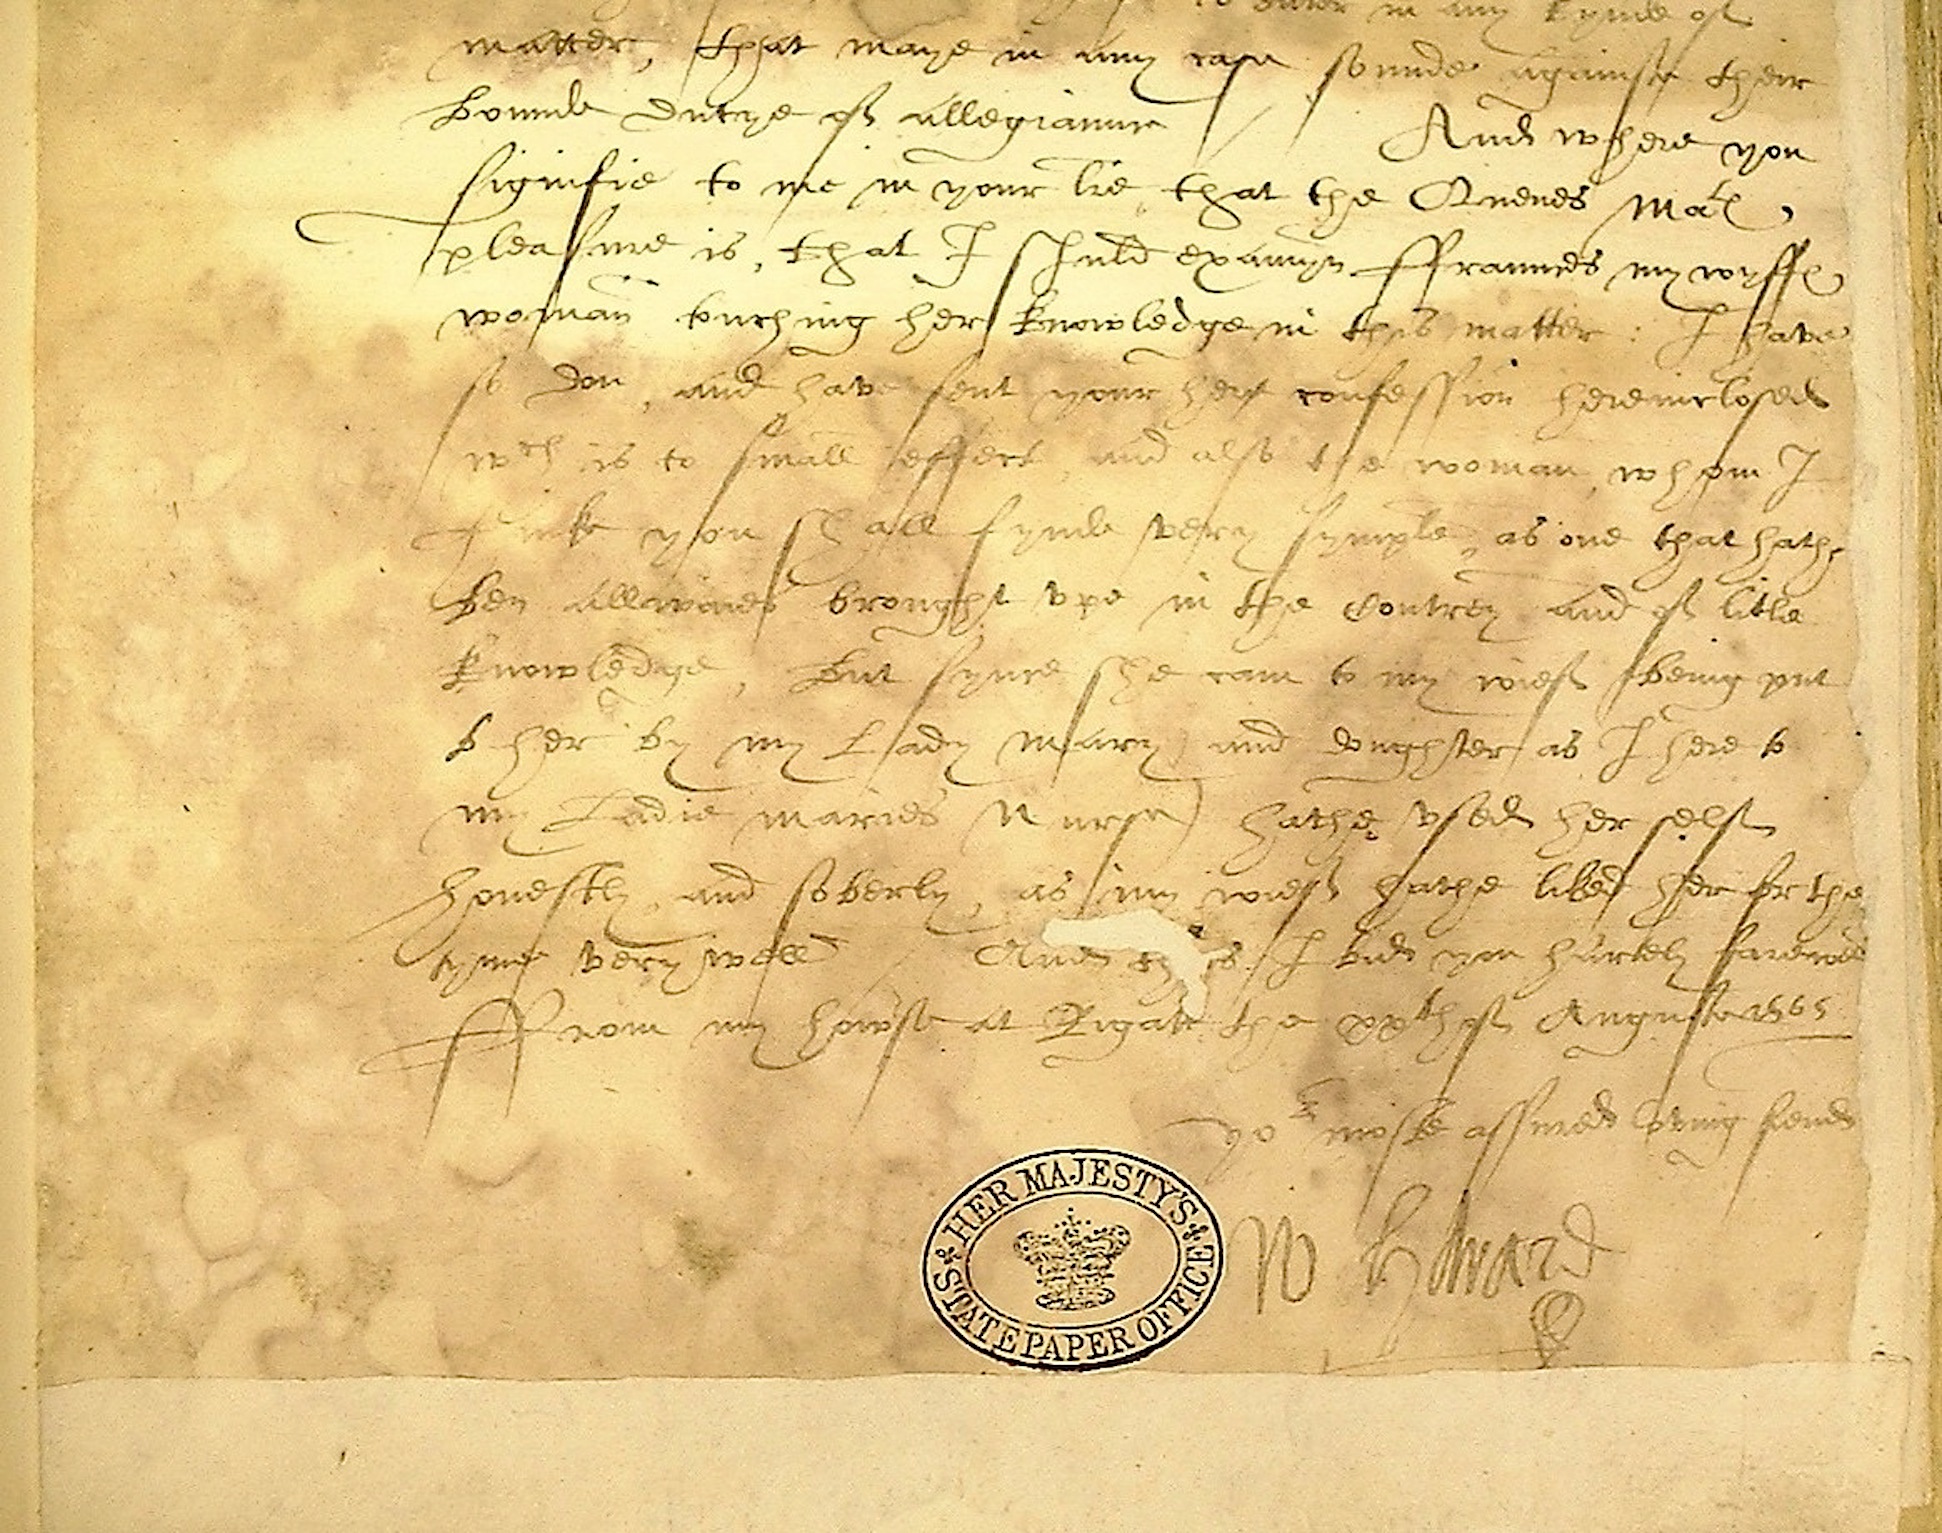 to enter in any kynde of
matter, that maye in any case sounde against their
bounde dutye of allegiaunce / And where you
signifie to me in your lre, that the Quenes Matis
pleasure is, that I shuld examyn ffraunces my wyffes
woman touching her knowledge in this matter : I have
so don, and have sent your her confession hereinclosed
wch is to small effect, and also the woman, whom I
think you shall fynde very symple, as one that hathe
ben allwaies brought vpe in the Contrey and of litle
knowledge, But synce she cam to my wief (being put
to her by my Lady Mary and doughter as I here to
my Ladie maries Nurse) hathe vsed her self
honestly and soberly, as my wief hathe liked her for the
tyme very well / And thus I bid you hartely farewell
ffrom my howse at Rigate the xxth of Auguste 1565
yor moste assured loving frend
W Howard
HER MAJESTY'S STATE PAPER OFFICE